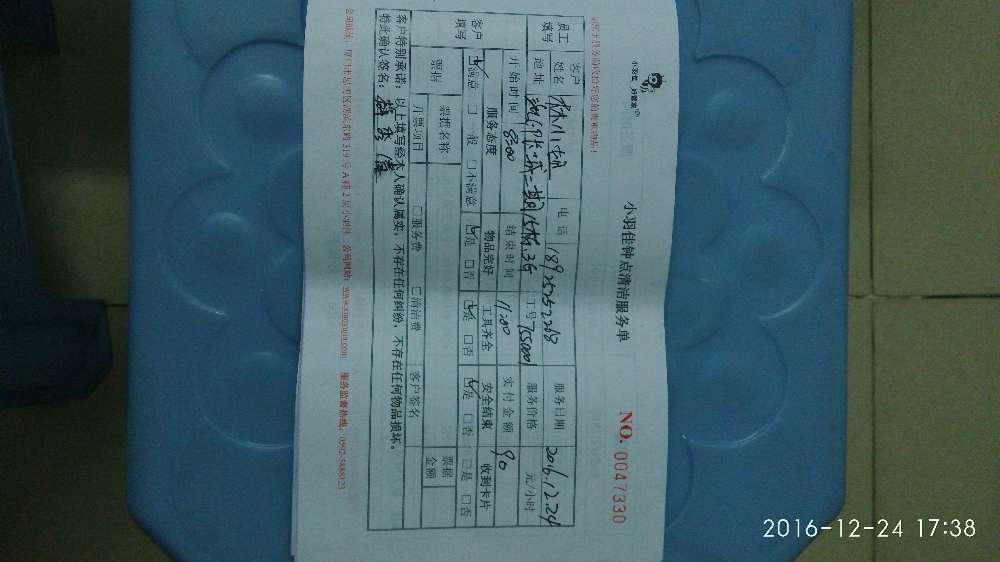 小羽佳 好管家
小羽佳钟点清洁服务单
NO. 0047330
员工填写
客户姓名 林小姐 电话 18925252268 服务日期 2016.12.24
地址 二期 3G 工号 755001 服务价格 元/小时
开始时间 8:00 结束时间 11:00 实付金额 90
客户填写
服务态度 物品完好 工具齐全 安全结束 收到卡片
☑满意 □一般 □不满意 ☑是 □否 ☑是 □否 ☑是 □否 □是 □否
票据 票据名称 票据金额
开票项目 □服务费 □清洁费 客户签名
客户特别承诺：以上填写经本人确认属实，不存在任何纠纷，不存在任何物品损坏。
特此确认签名：
公司网址： 服务监督热线：0592-5888123
2016-12-24 17:38